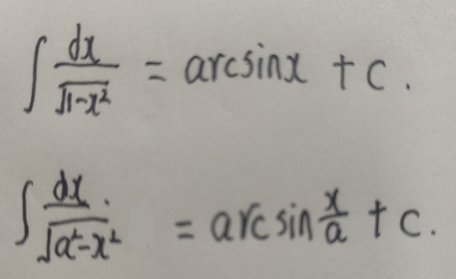 ∫ dx/√(1-x²) = arcsinx + c.
∫ dx/√(a²-x²) = arcsin x/a + c.